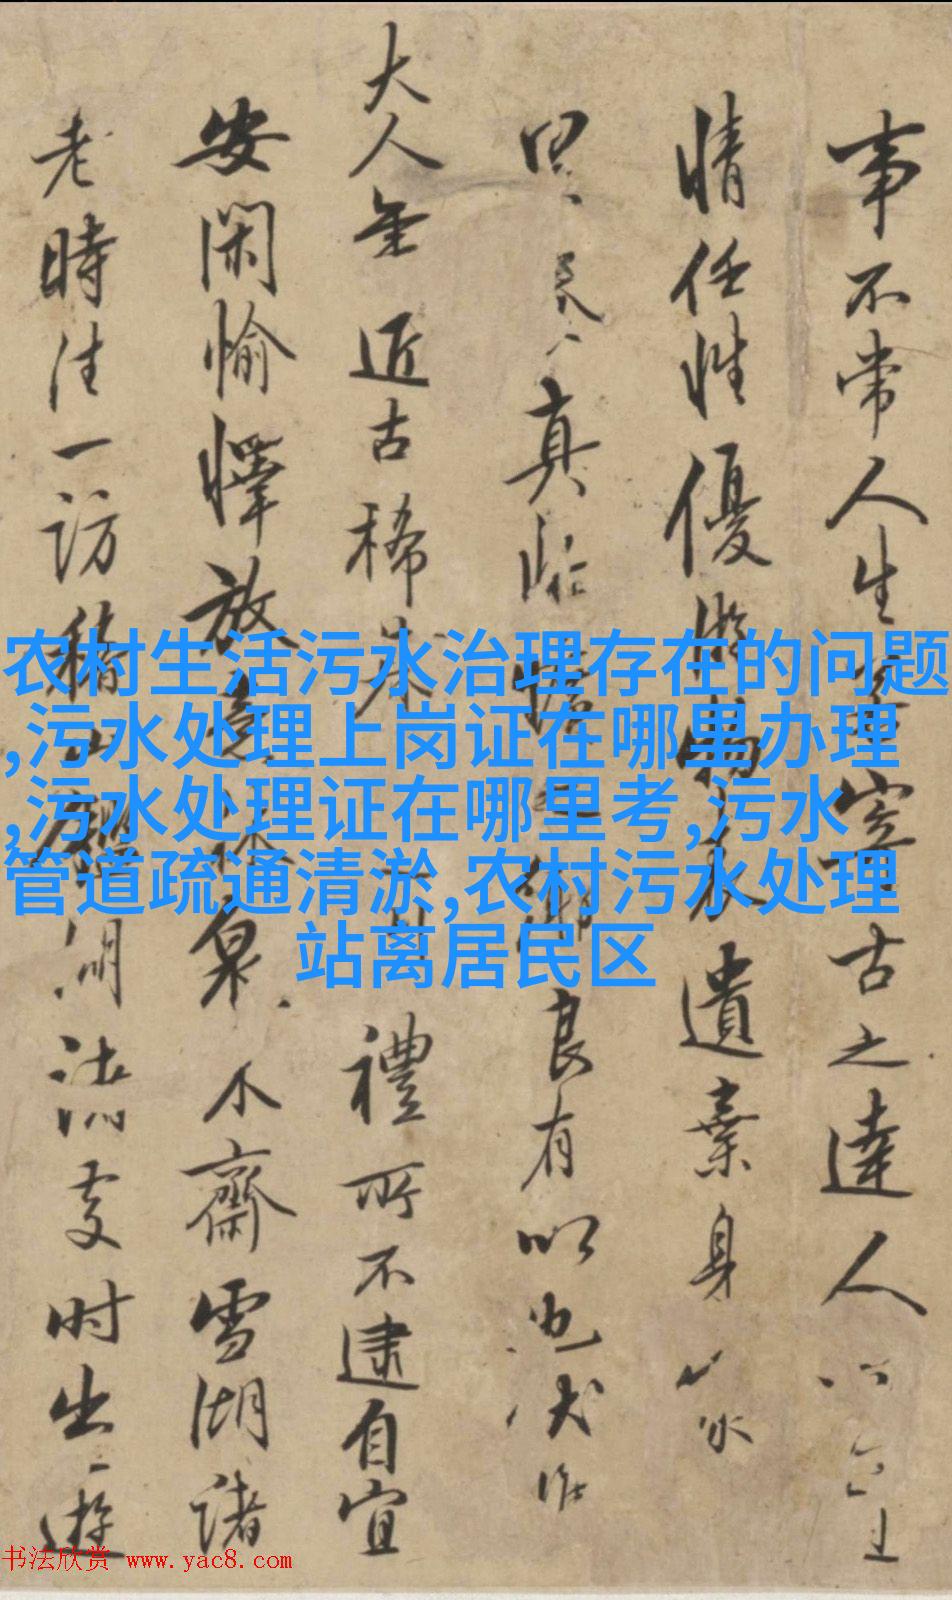 事不常人生[?]寓[?]古之達人
情任性優游物表遺棄身
真臨良有以也
大人年近古稀禮所不逮自宜
安閑愉懌放意林泉木齋雪湖諸
老時往一訪稽山鑑湖諸處時出一遊
农村生活污水治理存在的问题
,污水处理上岗证在哪里办理
,污水处理证在哪里考,污水
管道疏通清淤,农村污水处理
站离居民区
书法欣赏 www.yac8.com